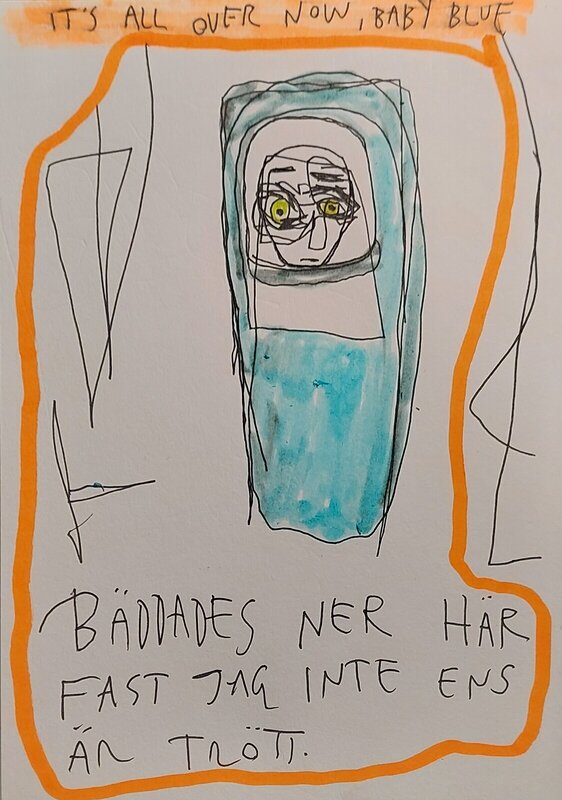 IT'S ALL OVER NOW, BABY BLUE
BÄDDADES NER HÄR
FAST JAG INTE ENS
ÄR TRÖTT.